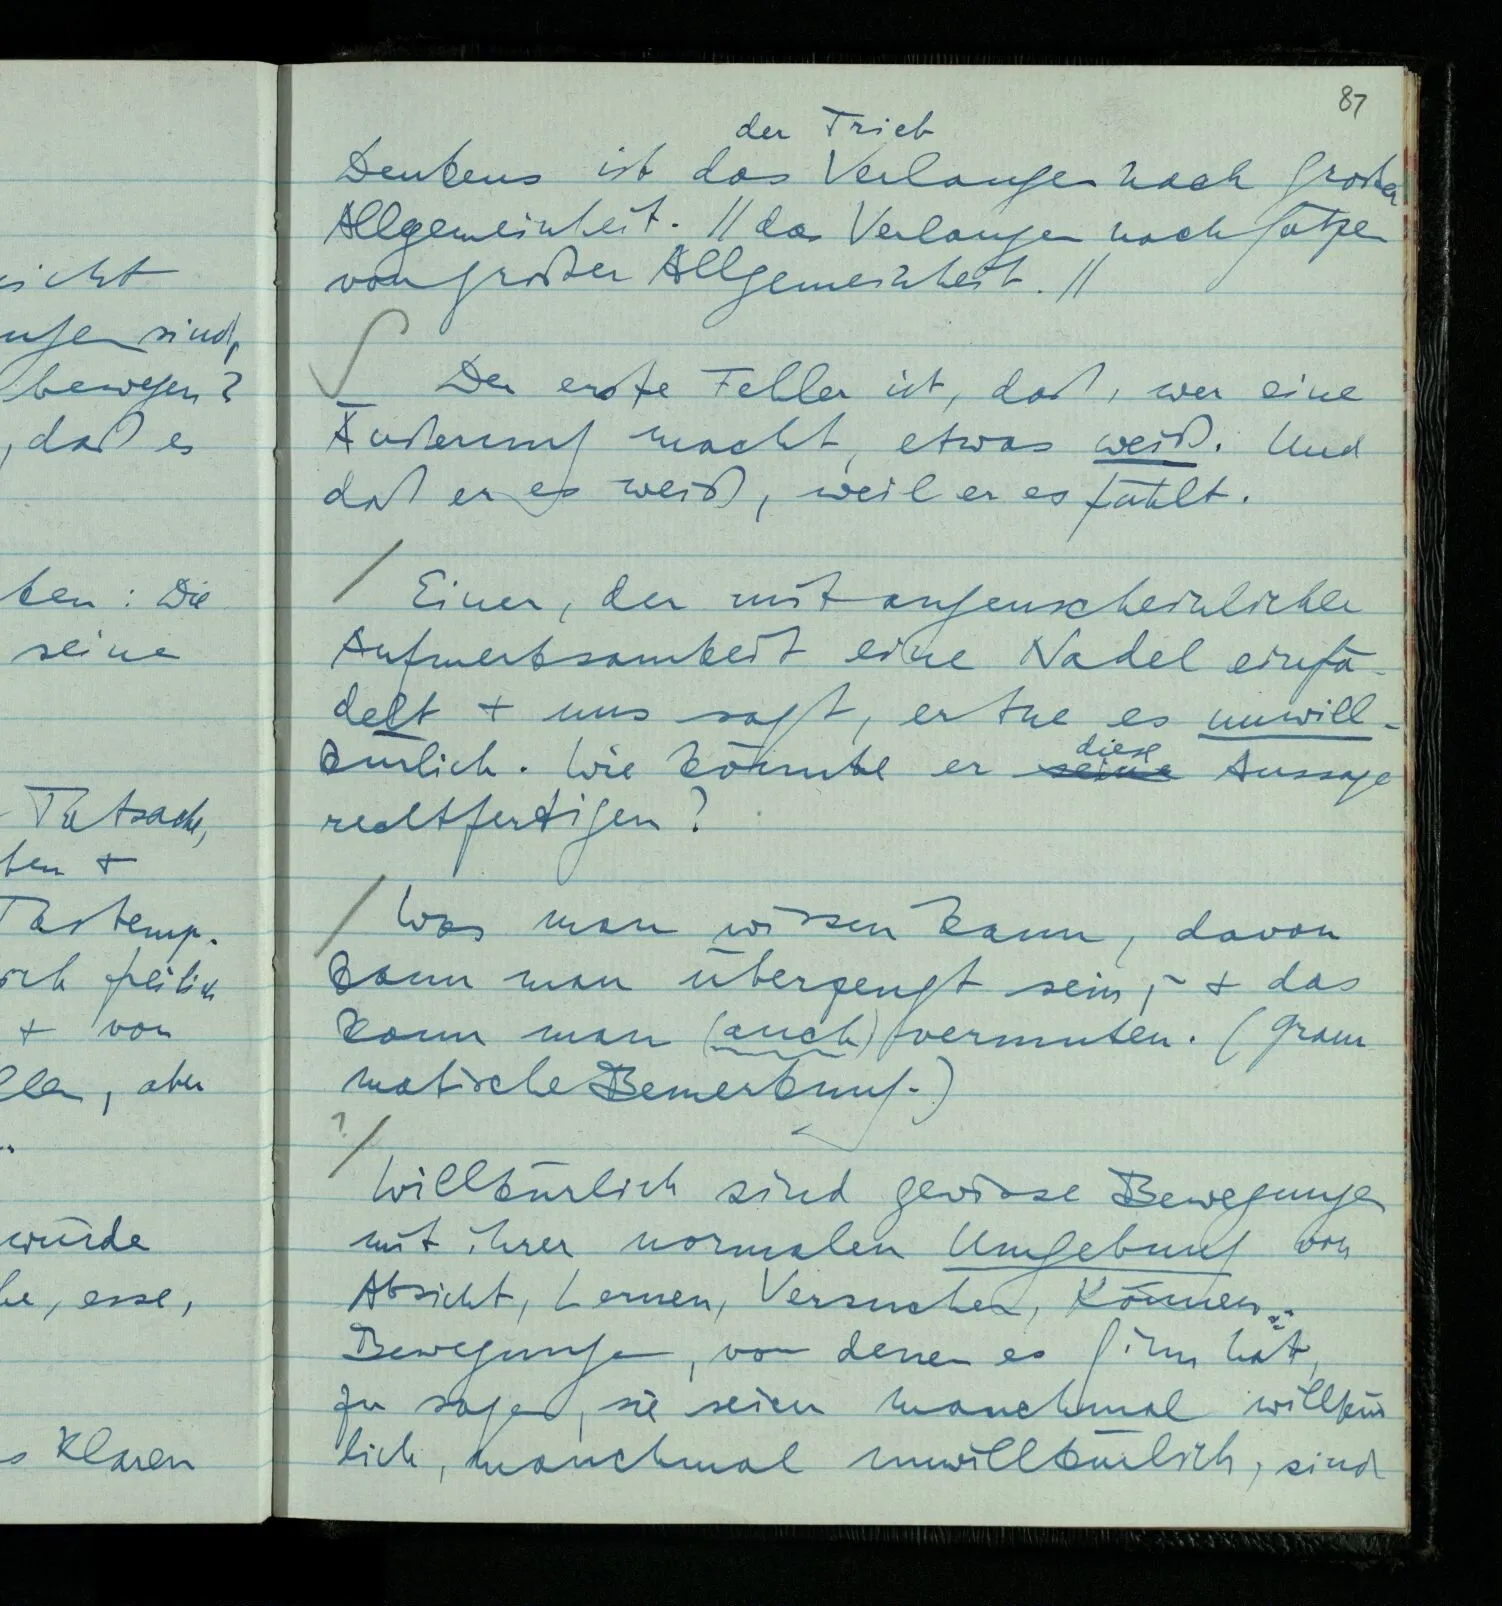 icht
ungen sind,
bewegen?
, daß es
ken: Die
seine
Tatsache,
ben +
Tastemp-
+ von
, aber
würde
he, esse,
s Klaren
87
der Trieb
Denkens ist das Verlangen nach großer
Allgemeinheit. // das Verlangen nach Sätzen
von großer Allgemeinheit. //
∫ Der erste Fehler ist, daß, wer eine
Äußerung macht, etwas weiß. Und
daß er es weiß, weil er es fühlt.
/ Einer, der mit augenscheinlicher
Aufmerksamkeit eine Nadel einfä-
delt + uns sagt, er tue es unwill-
diese
kürlich. Wie könnte er seine Aussage
rechtfertigen?
/ Was man wissen kann, davon
kann man überzeugt sein, – + das
kann man (auch) vermuten. (Gram
matische Bemerkung.)
?/
Willkürlich sind gewisse Bewegungen
mit ihrer normalen Umgebung von
Absicht, Lernen, Versuchen, Können..
Bewegungen, von denen es Sinn hat,
zu sagen, sie seien manchmal willkür
lich, manchmal unwillkürlich, sind